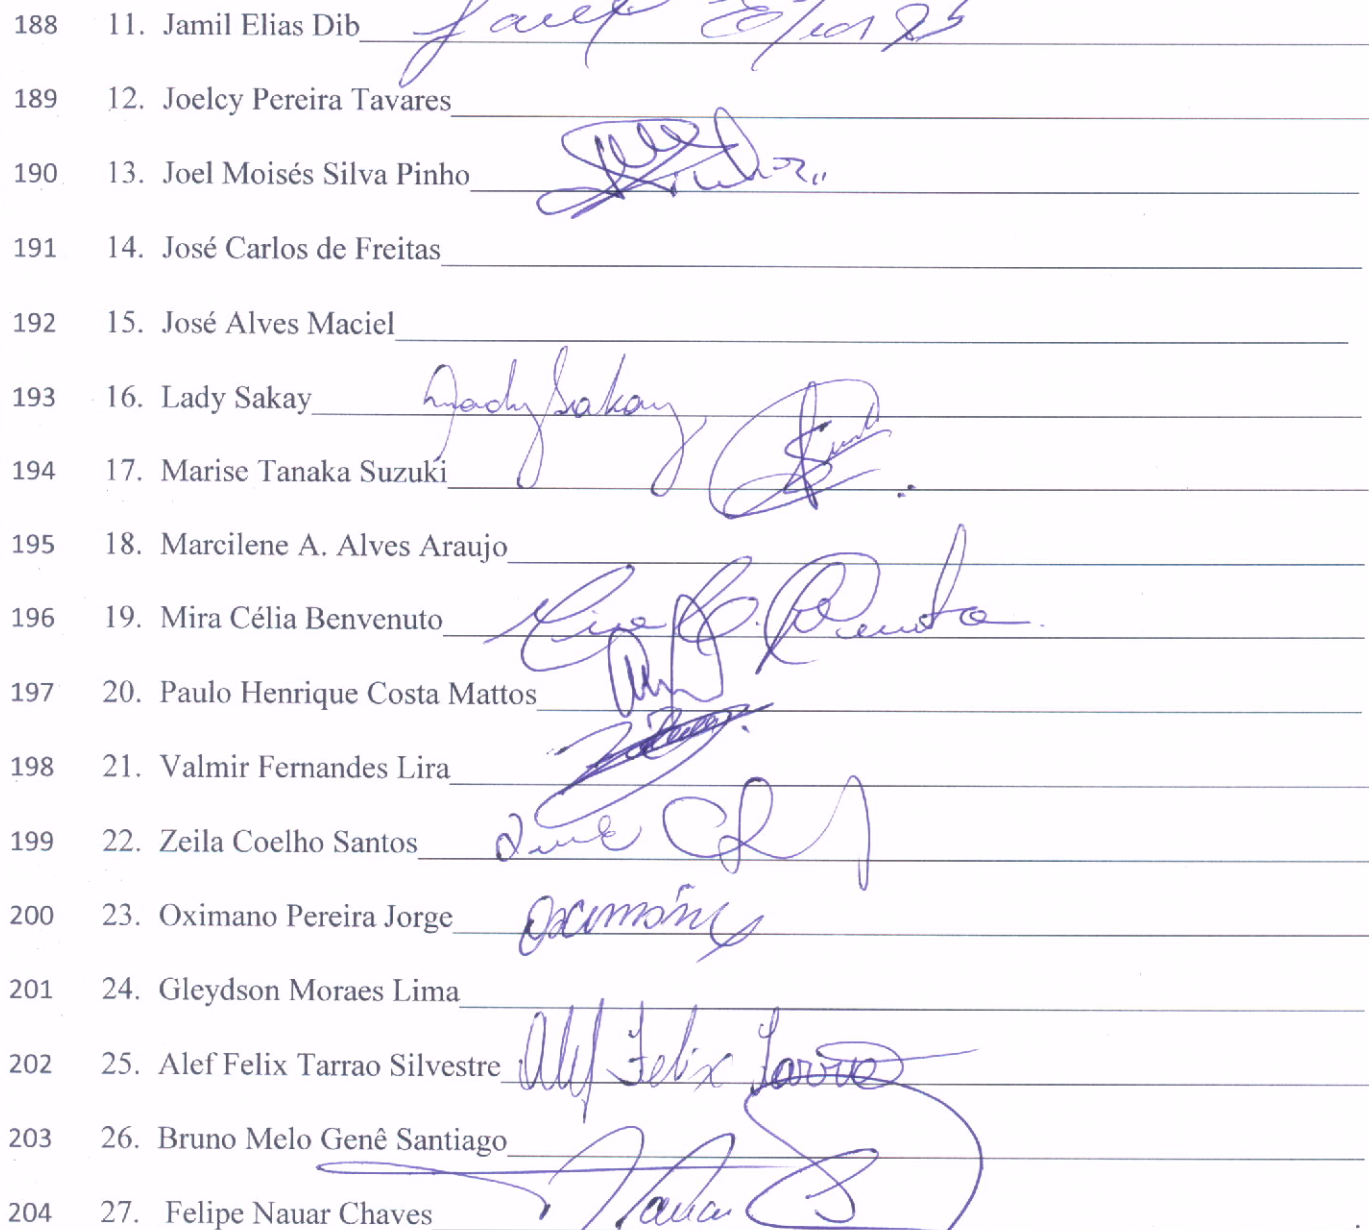 188 11. Jamil Elias Dib
189 12. Joelcy Pereira Tavares
190 13. Joel Moisés Silva Pinho
191 14. José Carlos de Freitas
192 15. José Alves Maciel
193 16. Lady Sakay Lady Sakay
194 17. Marise Tanaka Suzuki
195 18. Marcilene A. Alves Araujo
196 19. Mira Célia Benvenuto
197 20. Paulo Henrique Costa Mattos
198 21. Valmir Fernandes Lira
199 22. Zeila Coelho Santos
200 23. Oximano Pereira Jorge
201 24. Gleydson Moraes Lima
202 25. Alef Felix Tarrao Silvestre Alef Felix Tarrao
203 26. Bruno Melo Genê Santiago
204 27. Felipe Nauar Chaves